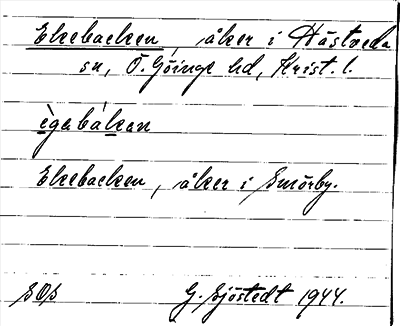 Ekebacken, åker i Hästveda
sn, Ö. Göinge hd, Krist. l.
ègabàkan
Ekebacken, åker i Smörby.
SOS G. Sjöstedt 1944.